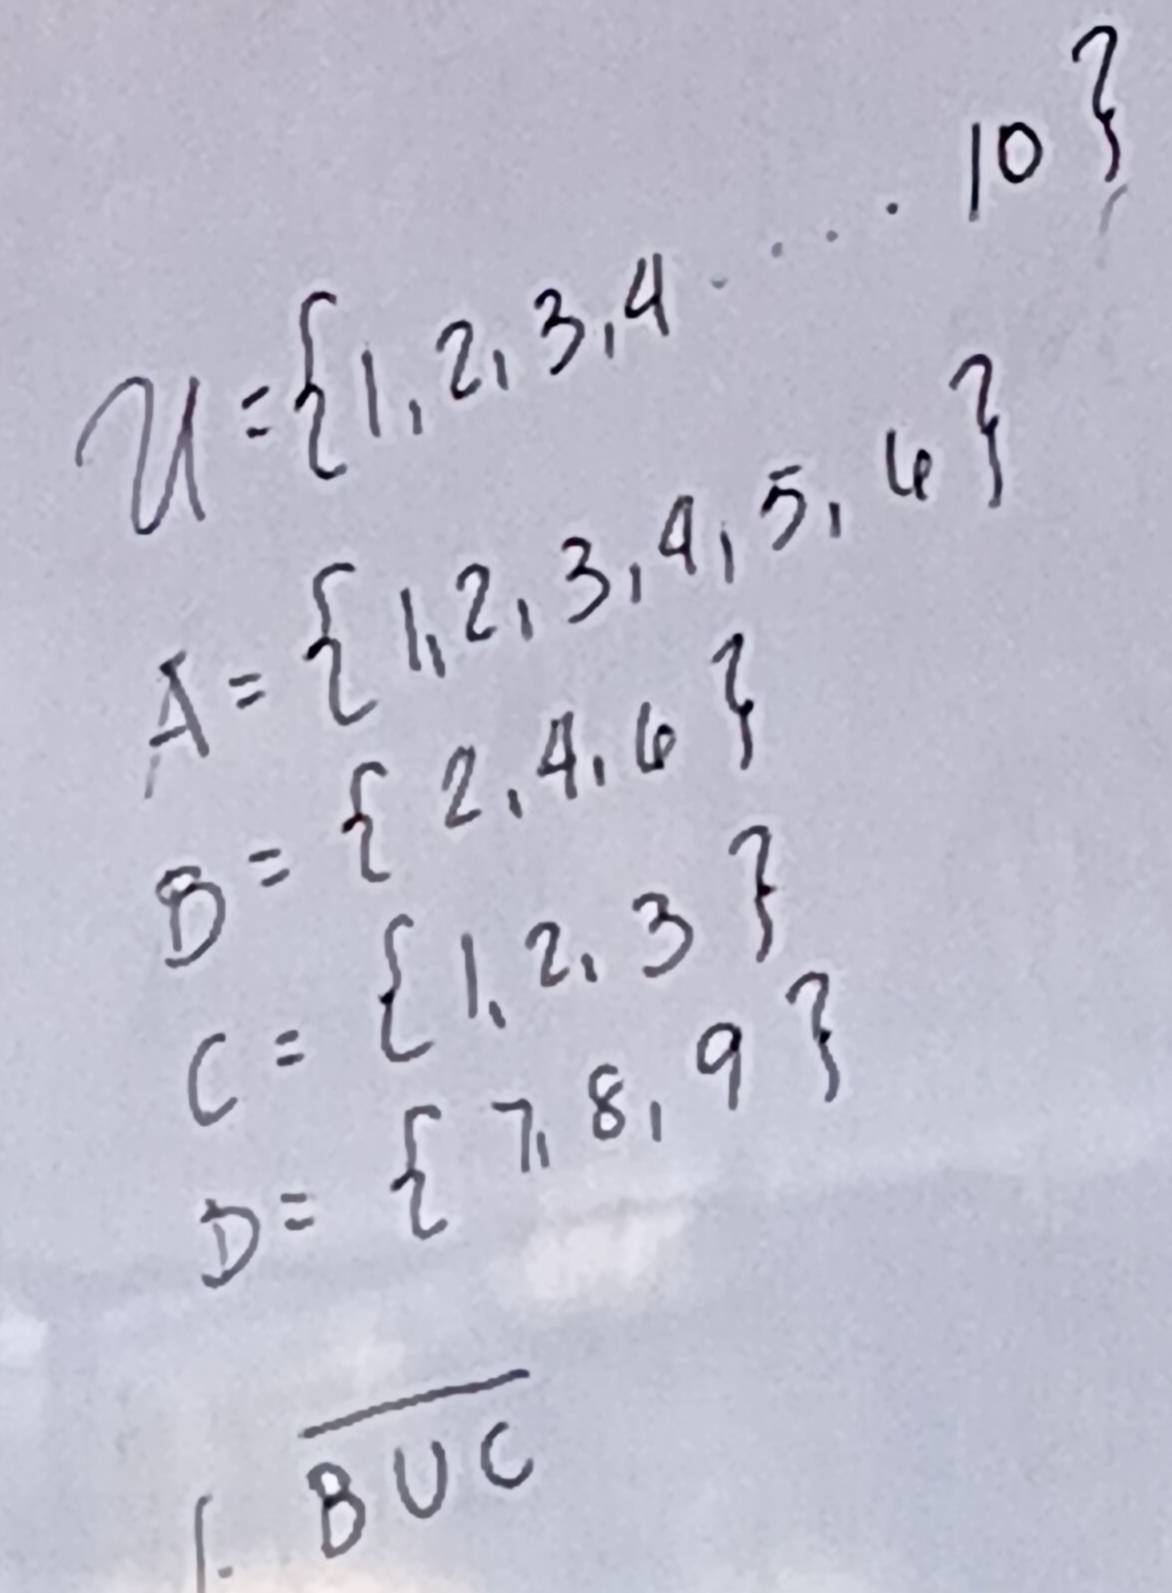 U={1, 2, 3, 4 . . . . 10}
A={1, 2, 3, 4, 5, 6}
B={2, 4, 6}
C={1, 2, 3}
D={7, 8, 9}
1. \overline{B U C}